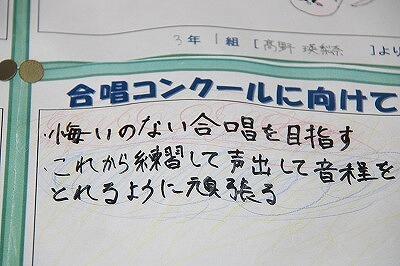 3年1組[髙野 瑛梨奈]より
合唱コンクールに向けて
・悔いのない合唱を目指す
・これから練習して声出して音程を
とれるように頑張る